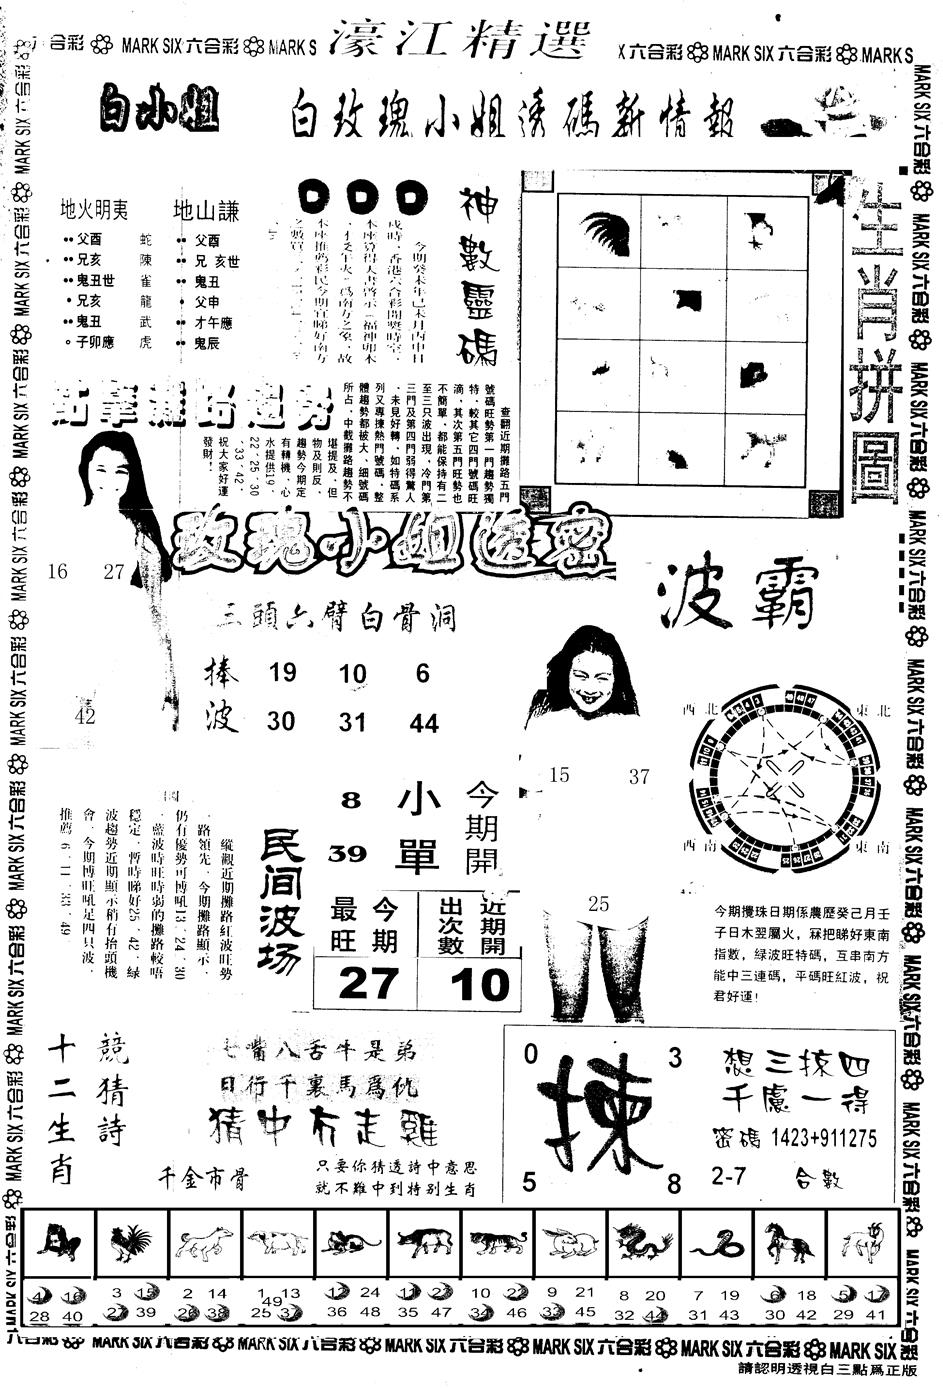 濠江精選
六合彩 MARK SIX 六合彩 MARK S
X 六合彩 MARK SIX 六合彩 MARK S
白小姐
白玫瑰小姐透碼新情報
地火明夷
父酉 蛇
兄亥 陳
鬼丑世 雀
兄亥 龍
鬼丑 武
子卯應 虎
地山謙
父酉
兄亥世
鬼丑
父申
才午應
鬼辰
神數靈碼
生肖拼圖
查翻近期攤路五門
號碼旺勢第一門趨勢獨
特﹐較其它四門號碼旺
滴﹐其次第五門旺勢也
不簡單﹐都能保持有二
至三只波出現﹐冷門第
三門及第四門弱得驚人
﹐未見好轉﹐如特碼系
列又專揀熱門號碼﹐整
體趨勢都被大﹑細號碼
所占﹐中截攤路趨勢不
堪提及﹐但
物及則反﹐
趨勢今期定
有轉機﹐心
水提供19﹑
22﹑25﹑30
﹑33﹑42﹐
祝大家好運
發財！
玫瑰小姐透密
16 27
42
三頭六臂白骨洞
捧波
19 10 6
30 31 44
波霸
15 37
25
西北 東北
西南 東南
今期開
小單
8
39
民间波场
縱觀近期攤路紅波旺勢
﹐路領先﹐今期攤路顯示﹐
仍有優勢可博吼13﹑24﹑30
﹐藍波時旺時弱的攤路較唔
穩定﹐暫時睇好25﹑42﹐綠
波趨勢近期顯示稍有抬頭機
會﹐今期博旺吼足四只波﹐
推薦 6﹑11﹑33﹑49
今期最旺
近期開出次數
27 10
今期攪珠日期係農歷癸己月壬
子日木翌屬火，冧把睇好東南
指數，綠波旺特碼，互串南方
能中三連碼，平碼旺紅波，祝
君好運!
競猜詩
十二生肖
七嘴八舌牛是弟
日行千裏馬爲仇
猜中冇走雞
千金市骨
只要你猜透詩中意思
就不難中到特別生肖
0 3
揀
5 8
想三揀四
千慮一得
密碼 1423+911275
2-7 合數
4 16 28 40
3 15 27 39
2 14 26 38
1 13 25 37 49
12 24 36 48
11 23 35 47
10 22 34 46
9 21 33 45
8 20 32 44
7 19 31 43
6 18 30 42
5 17 29 41
六合彩 MARK SIX 六合彩 MARK SIX 六合彩 MARK SIX 六合彩 MARK SIX 六合彩 MARK SIX 六合彩 MARK SIX
請認明透視白三點爲正版